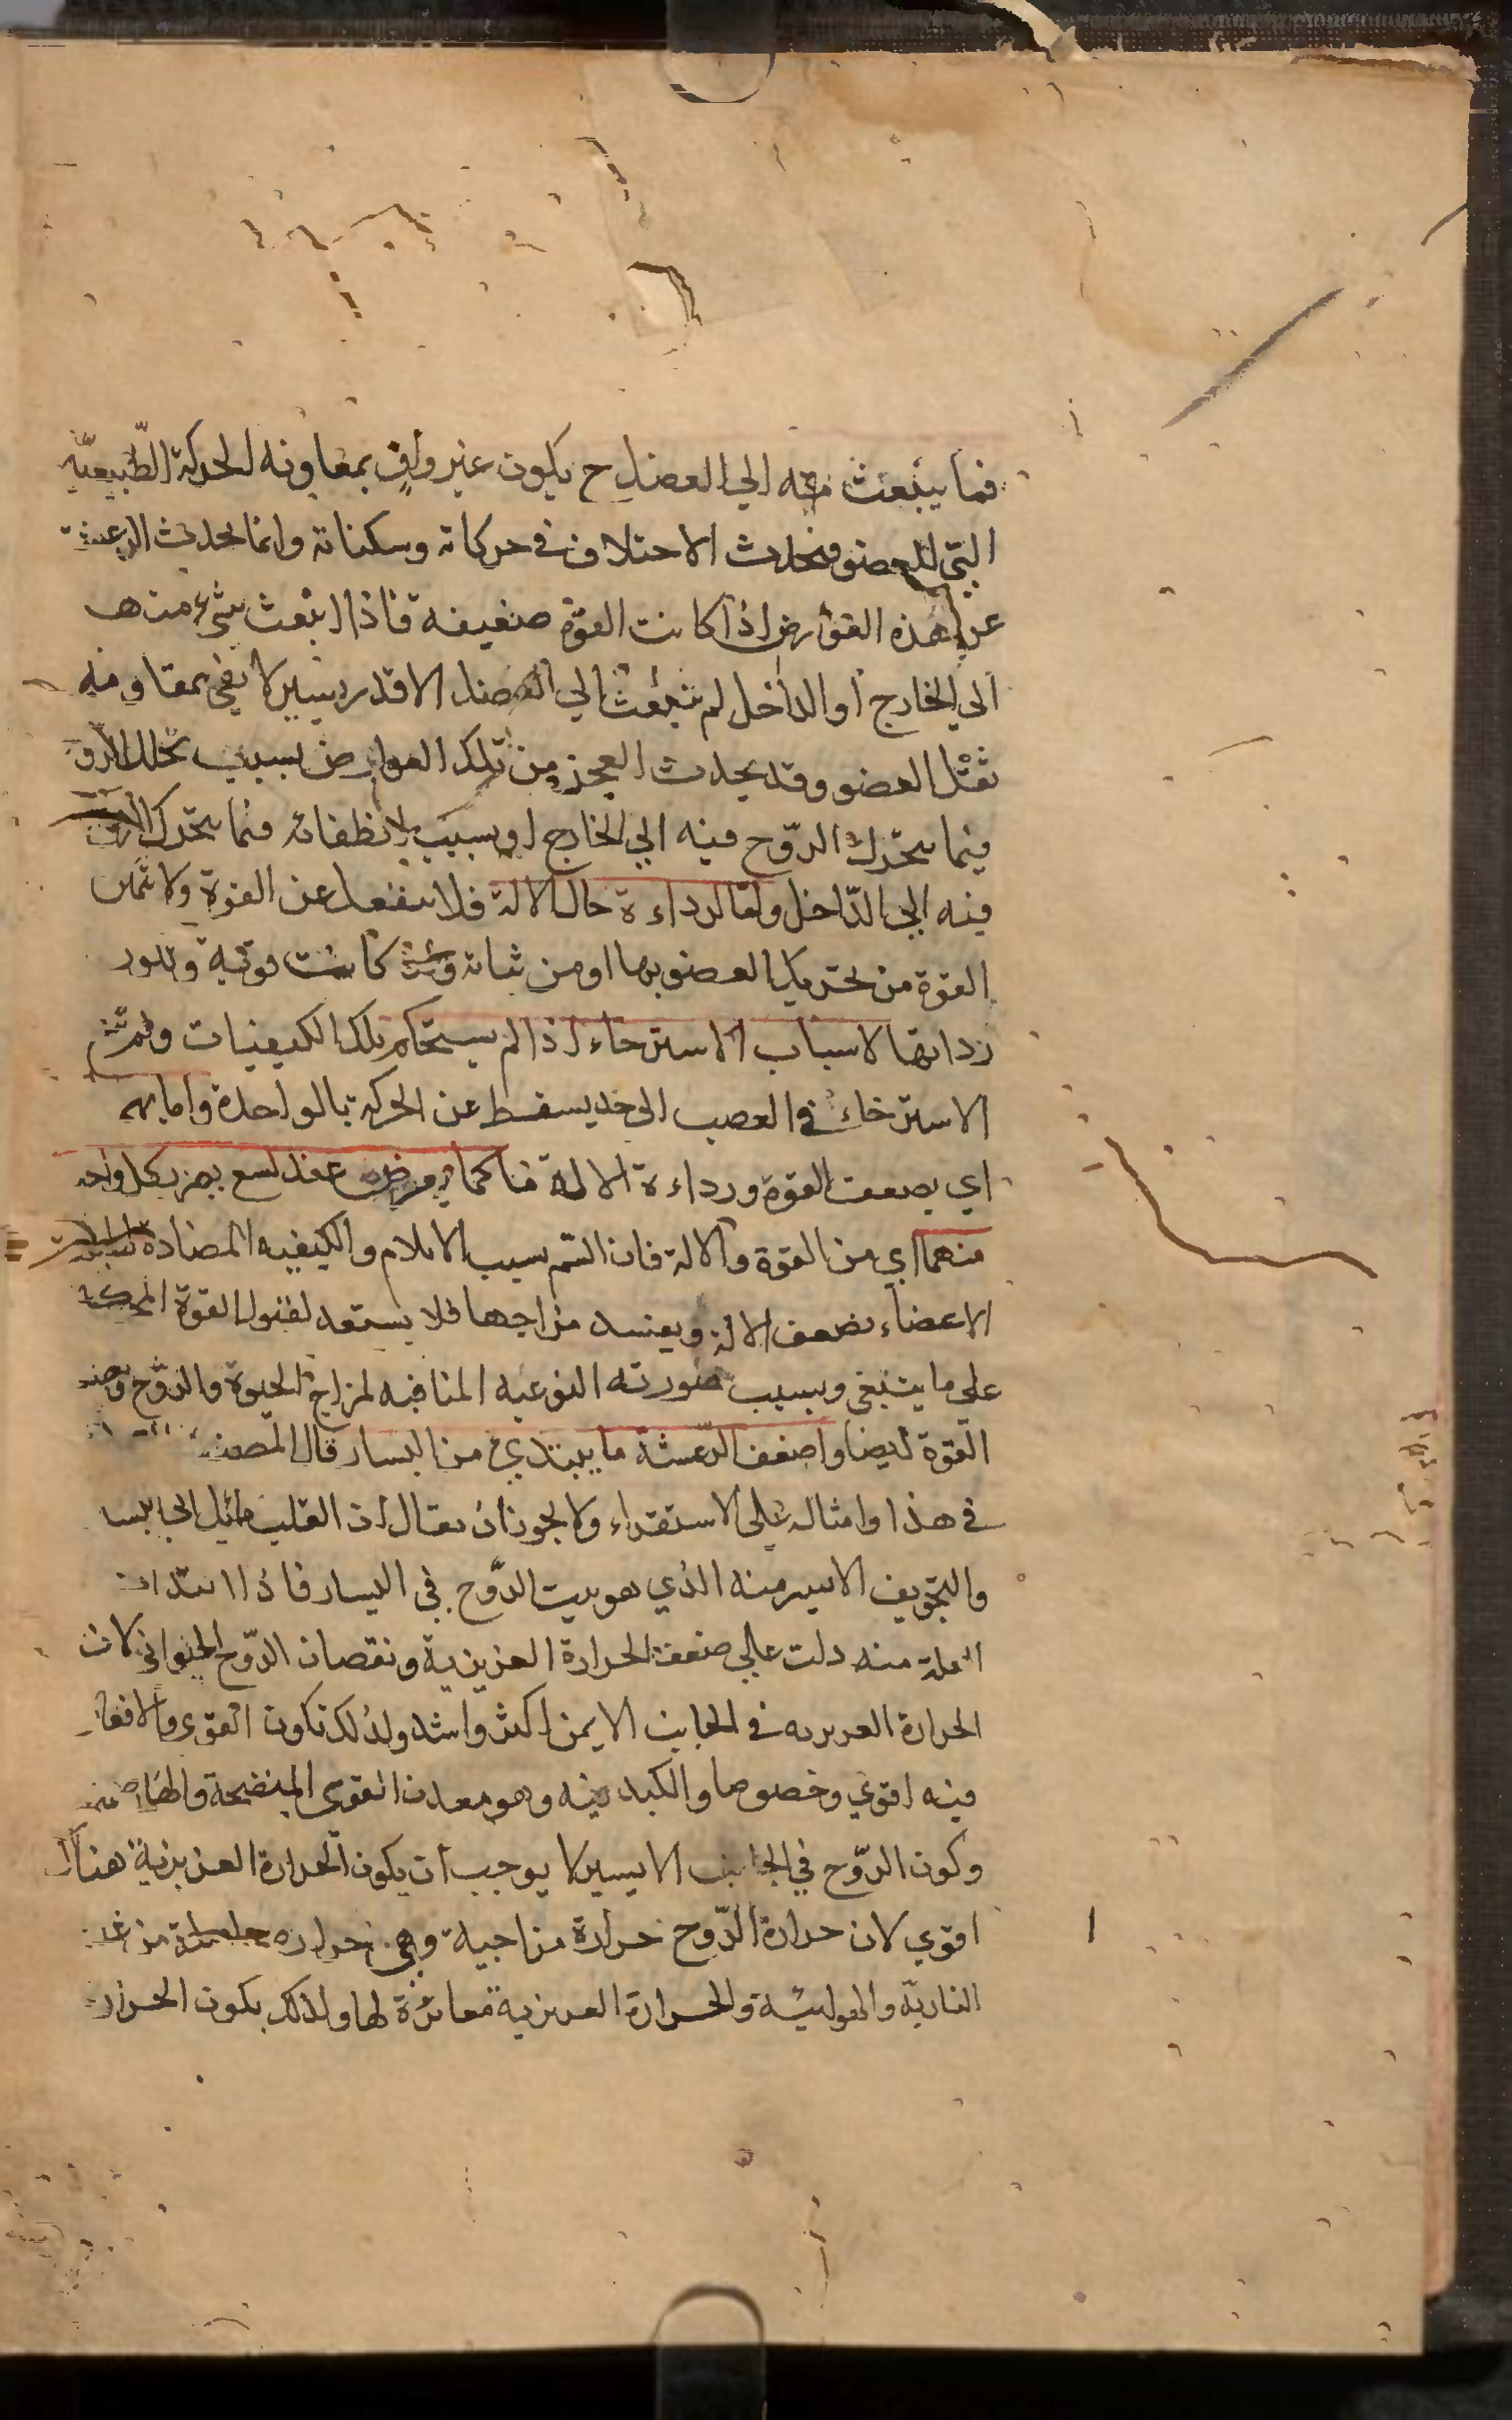 فما ينبعث منه الي العضل ح يكون غير واف بمعاونه الحركة الطّبيعيّه
التي للعضو فيحدث الاختلاف في حركاته وسكناته وانما يحدث الرعشة
عن هذه العوارض اذا كانت القوّة ضعيفة فاذا انبعث شيء منها
الي الخارج او الداخل لم ينبعث الي العضل الا قدر يسير لا يفي بمقاومة
ثقل العضو وقد يحدث العجز من تلك العوارض بسبب تحلل الروح
فيما يتحرّك الرّوح فيه الي الخارج او بسبب انطفائه فيما يتحرك الروح
فيه الي الدّاخل واما لرداءة حال الالة فلا ينفعل عن القوة ولا تتمكن
القوة من تحريك العضو بها او من ثباته وان كانت قوية وتكون
رداتها لاسباب الاسترخاء اذا لم يستحكم تلك الكيفيات ولم يتم
الاسترخاء في العصب الي حد يسقط عن الحركة بالواحدة واما بهما
اي بضعف القوة ورداءة الالة فكما يعرض عند لسع يضر بكل واحد
منهما اي من القوة والالة فان السّم بسبب الايلام والكيفيه المضادة
الاعضاء يضعف الالة ويفسد مزاجها فلا يستعد لقبول القوة المحركة
علي ما ينبغي وبسبب صورته النوعيه المنافيه لمزاج الحيوة والرّوح
القوة ايضا واضعف الرّعشة ما يبتدي من اليسار قال المصنف
في هذا وامثاله علي الاستقراء ولا يجوز ان يقال ان القلب مائل الي اليسا
والتجويف الايسر منه الذي هو بيت الرّوح في اليسار فاذا ابتدات
العلة منه دلت علي ضعف الحرارة الغريزية ونقصان الرّوح الحيواني لان
الحرارة الغريزيه في الجانب الايمن اكثر واشد ولذلك تكون القوى والافعال
فيه اقوي وخصوصا والكبد فيه وهو معدن القوى المنضجة والهاضمة
وكون الرّوح في الجانب الايسر لا يوجب ان يكون الحرارة الغريزية هناك
اقوي لان حرارة الرّوح حرارة مزاجية وهي حرارة حاصلة من
الناريّة والهوائيّة والحرارة الغريزية مغائرة لها ولذلك يكون الحرارة